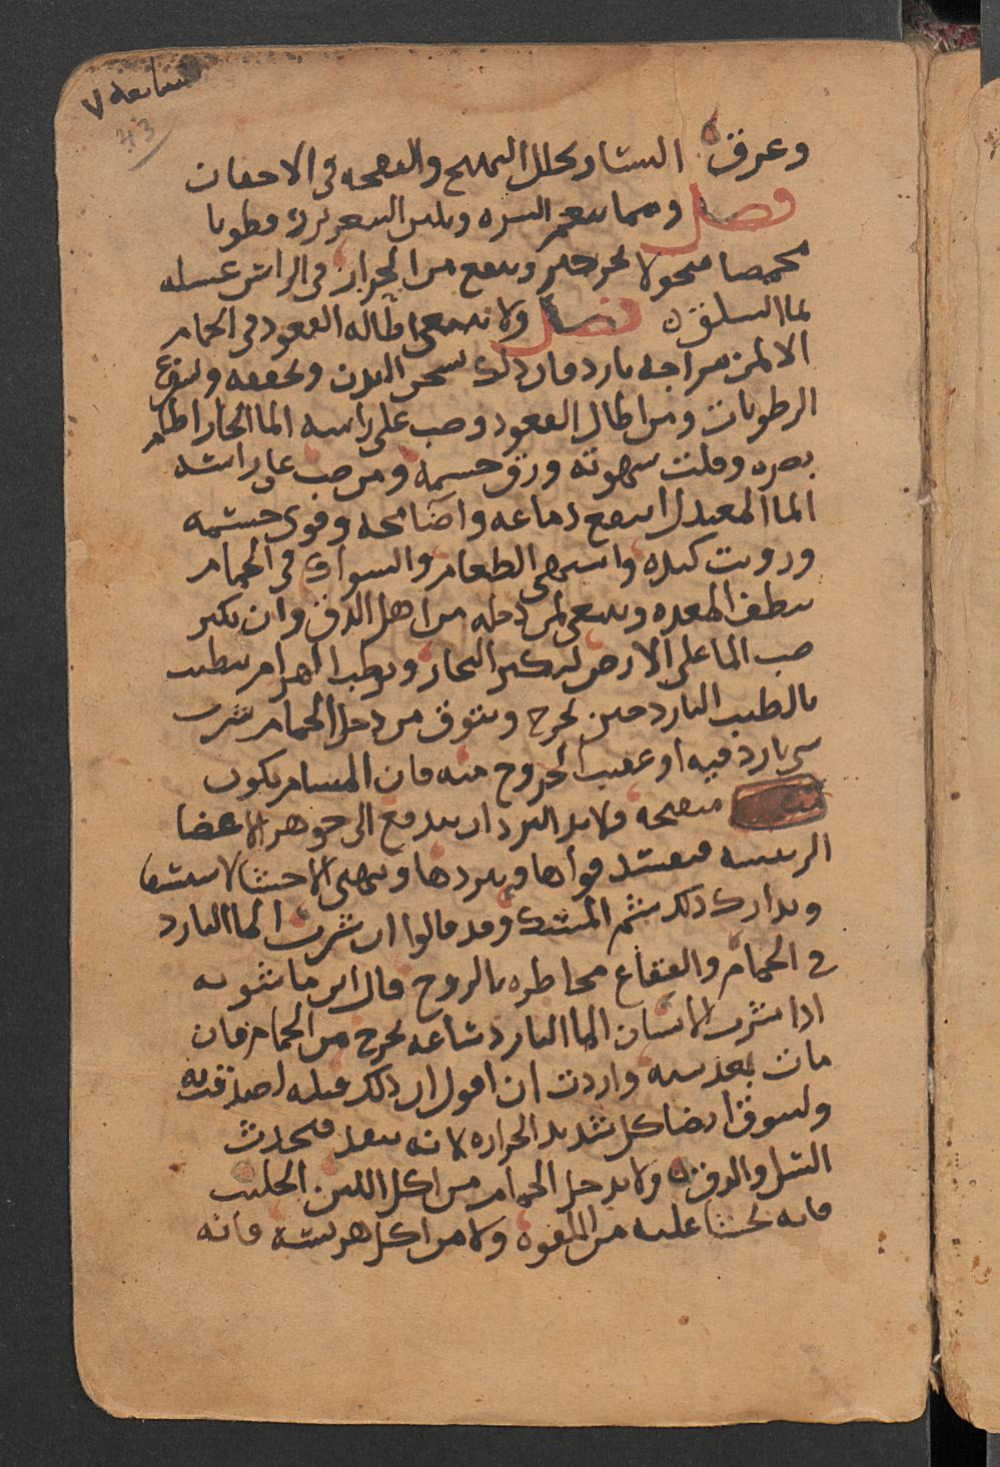 سابعه ٧
43
وعرق النسا ويحلل التهيج والنفخه في الاجفان
فصل ومما ينعم البشره ويلين الشعر بزر قطونا
محمصا مسحولا بحرحير وينفع من الحزاز في الراس غسله
بما السلق فصل ولا ينبغي اطالة القعود في الحمام
الا لمن مزاجه بارد فان ذلك يسخن البدن ويجففه ويفرغ
الرطوبات ومن اطال القعود وصب على راسه الما الحار اظلم
بصره وقلت شهوته ورق جسمه ومن صب على راسه
الما المعتدل انتفع دماعه واضا محه وقوى جسمه
ورويت كبده واشتهى الطعام والسواك في الحمام
ينظف المعده وينبغي لمن دخله من اهل الدق وان يكثر
صب الما على الارض ليكثر البخار ويرطب الهوا ثم يتطيب
بالطيب البارد حين يخرج ويتوق من دخل الحمام شرب
شي بارد فيه او عقيب الخروج منه فان المسام يكون
منفتحه فلا يد البرد ان يندفع الى جوهر الاعضا
الرييسه فيفسد قواها ويبردها ويهيئ الاحشا للاستسقا
وتدارك ذلك بشم المسك وقد قالوا ان شرب الما البارد
في الحمام والفقاع مخاطره بالروح قال ابن ماسويه
اذا شرب الانسان الما البارد ساعه يخرج من الحمام فان
مات بعد سنه واردت ان اقول ان ذلك قتله لصدقت
وليتوق ايضا كل شديد الحراره لانه ينفذ فيحدث
السل والدق ولا يدخل الحمام من اكل اللبن الحليب
فانه يخشا عليه من اللقوه ولا من اكل هريسة فانه